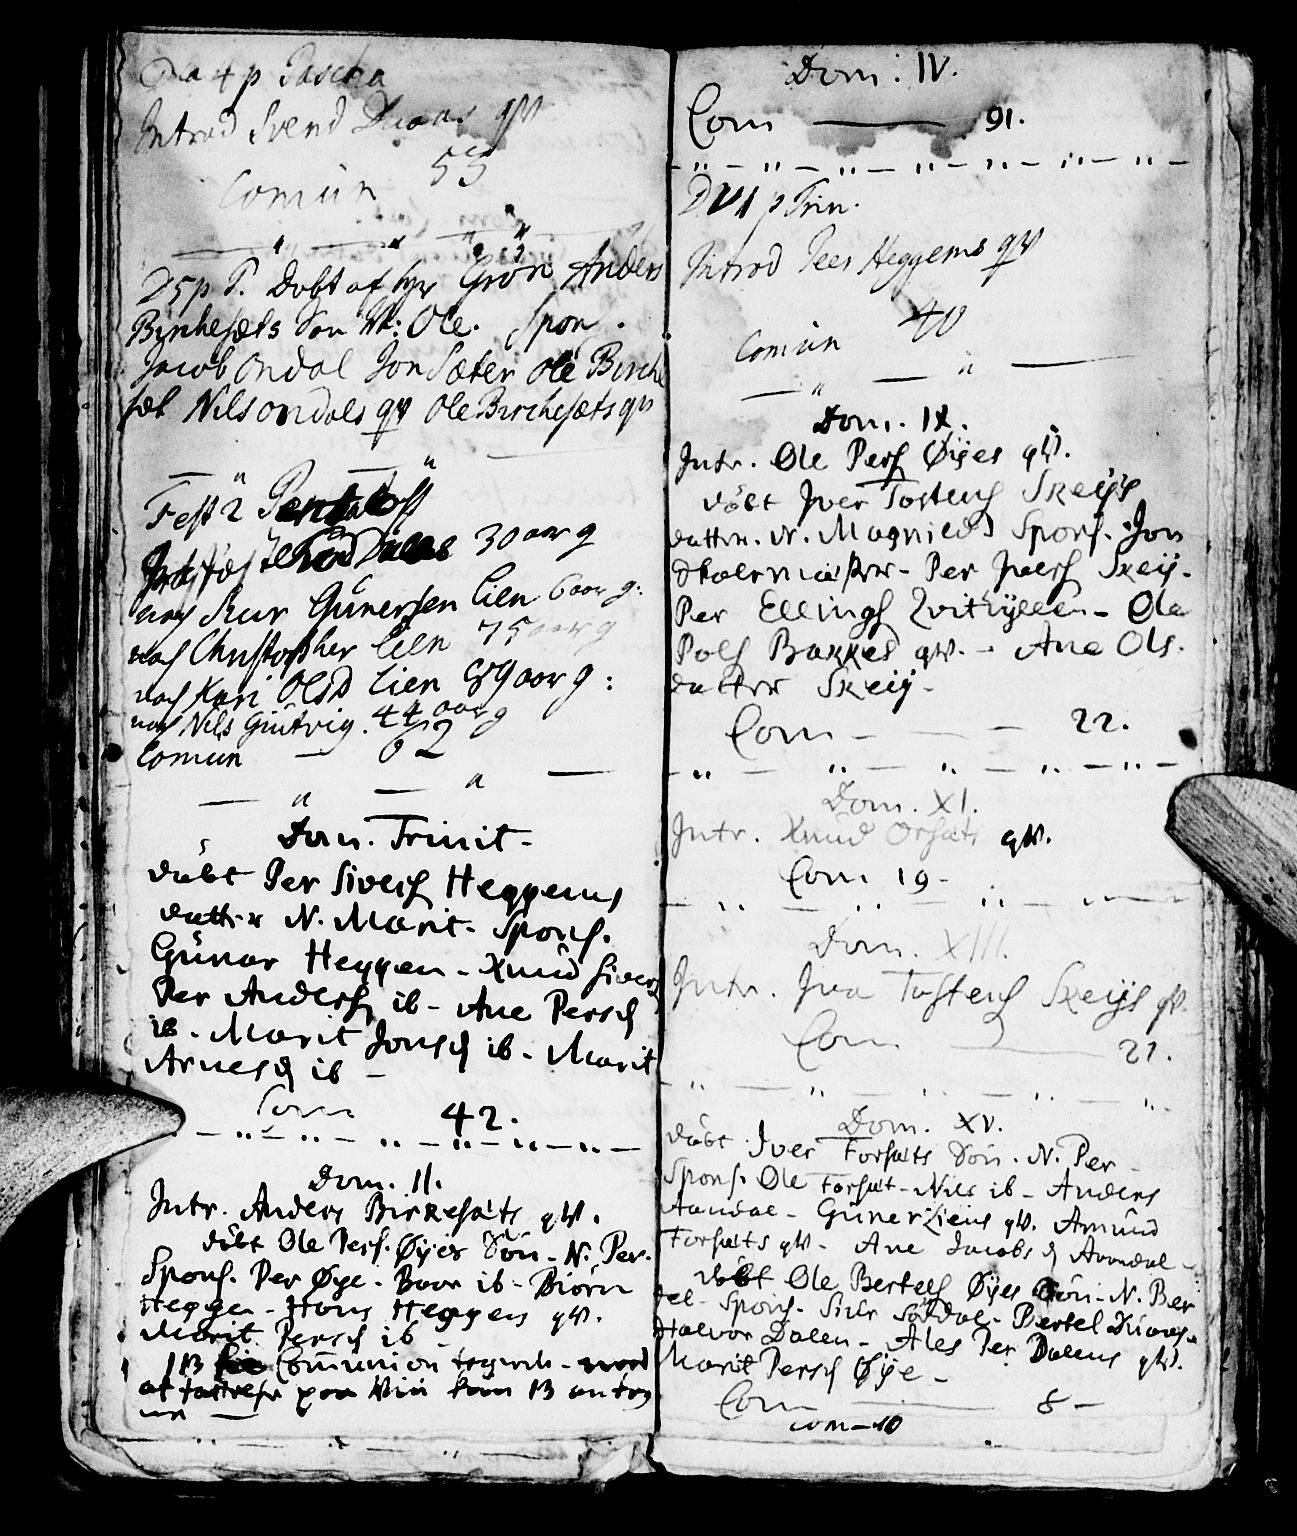 Da 4 p Pascha
Introd Svend Duaas qv
Comun 55
D 5 p P. Døbt af hr Grøn Anders
Birchesæts Søn N: Ole. Spons.
Jacob Ondal Jon Sæter Ole Birche
sæt Nils Ondals qv Ole Birchesæts qv
Fest 2 Pentecost
30 aar g
noch Sivr Gunersen Lien 6 aar g:
noch Christopher Lien 75 aar g
noch Kari Olsd Lien 89 aar g:
noch Nils Giutvig. 44 aar g
Comun — 62
Dom. Trinit-
döbt Per Sivers Heggems
datter N. Marit- Spons.
Günar Heggem - Knud Sivers
Per Anders ib - Ane Persd
ib - Marit Jonsd ib - Marit
Arnesd ib -
Com 42.
Dom. II.
Intr. Anders Birkesæts qv.
döbt Ole Pers. Øyes Sön - N. Per.
Spons. Per Øye - Baar ib - Biörn
Heggem - Hans Heggems qv.
Marit Persd ib
NB Communion
at paa Viin NB
Dom. IV.
Com — 91.
D. VII p Trin.
Introd Peer Heggems qv
Comun 40
Dom. IX.
Intr. Ole Pers Øyes qv.
döbt Iver Tostens Skeys
datter. N. Magnild Spons. Jon
Per Ivers Skeij-
Per Ellings Qvitkyllen - Ole
Pols Bakkes qv. - Ane Ols.
datter Skeij-
Com — 22.
Dom. XI.
Intr. Knud Orsæts qv.
Com 19-
Dom. XIII.
Intr. Iver Tostens Skeijs qv.
Com — 21.
Dom. XV.
döbt Iver Forsæts Sön. N. Per -
Spons. Ole Forsæt - Nils ib - Anders
Aandal - Güner Liens qv. Amund
Forsæts qv - Ane Jacobsd Aarndal -
döbt Ole Bertels Øyes Sön - N. Ber
tel - Spons. Siver Sördal - Bertel Duaas -
Halvor Dalen - Ales Per Dalens qv.
Marit Persd Øye -
Com — 8 -
Com - 10